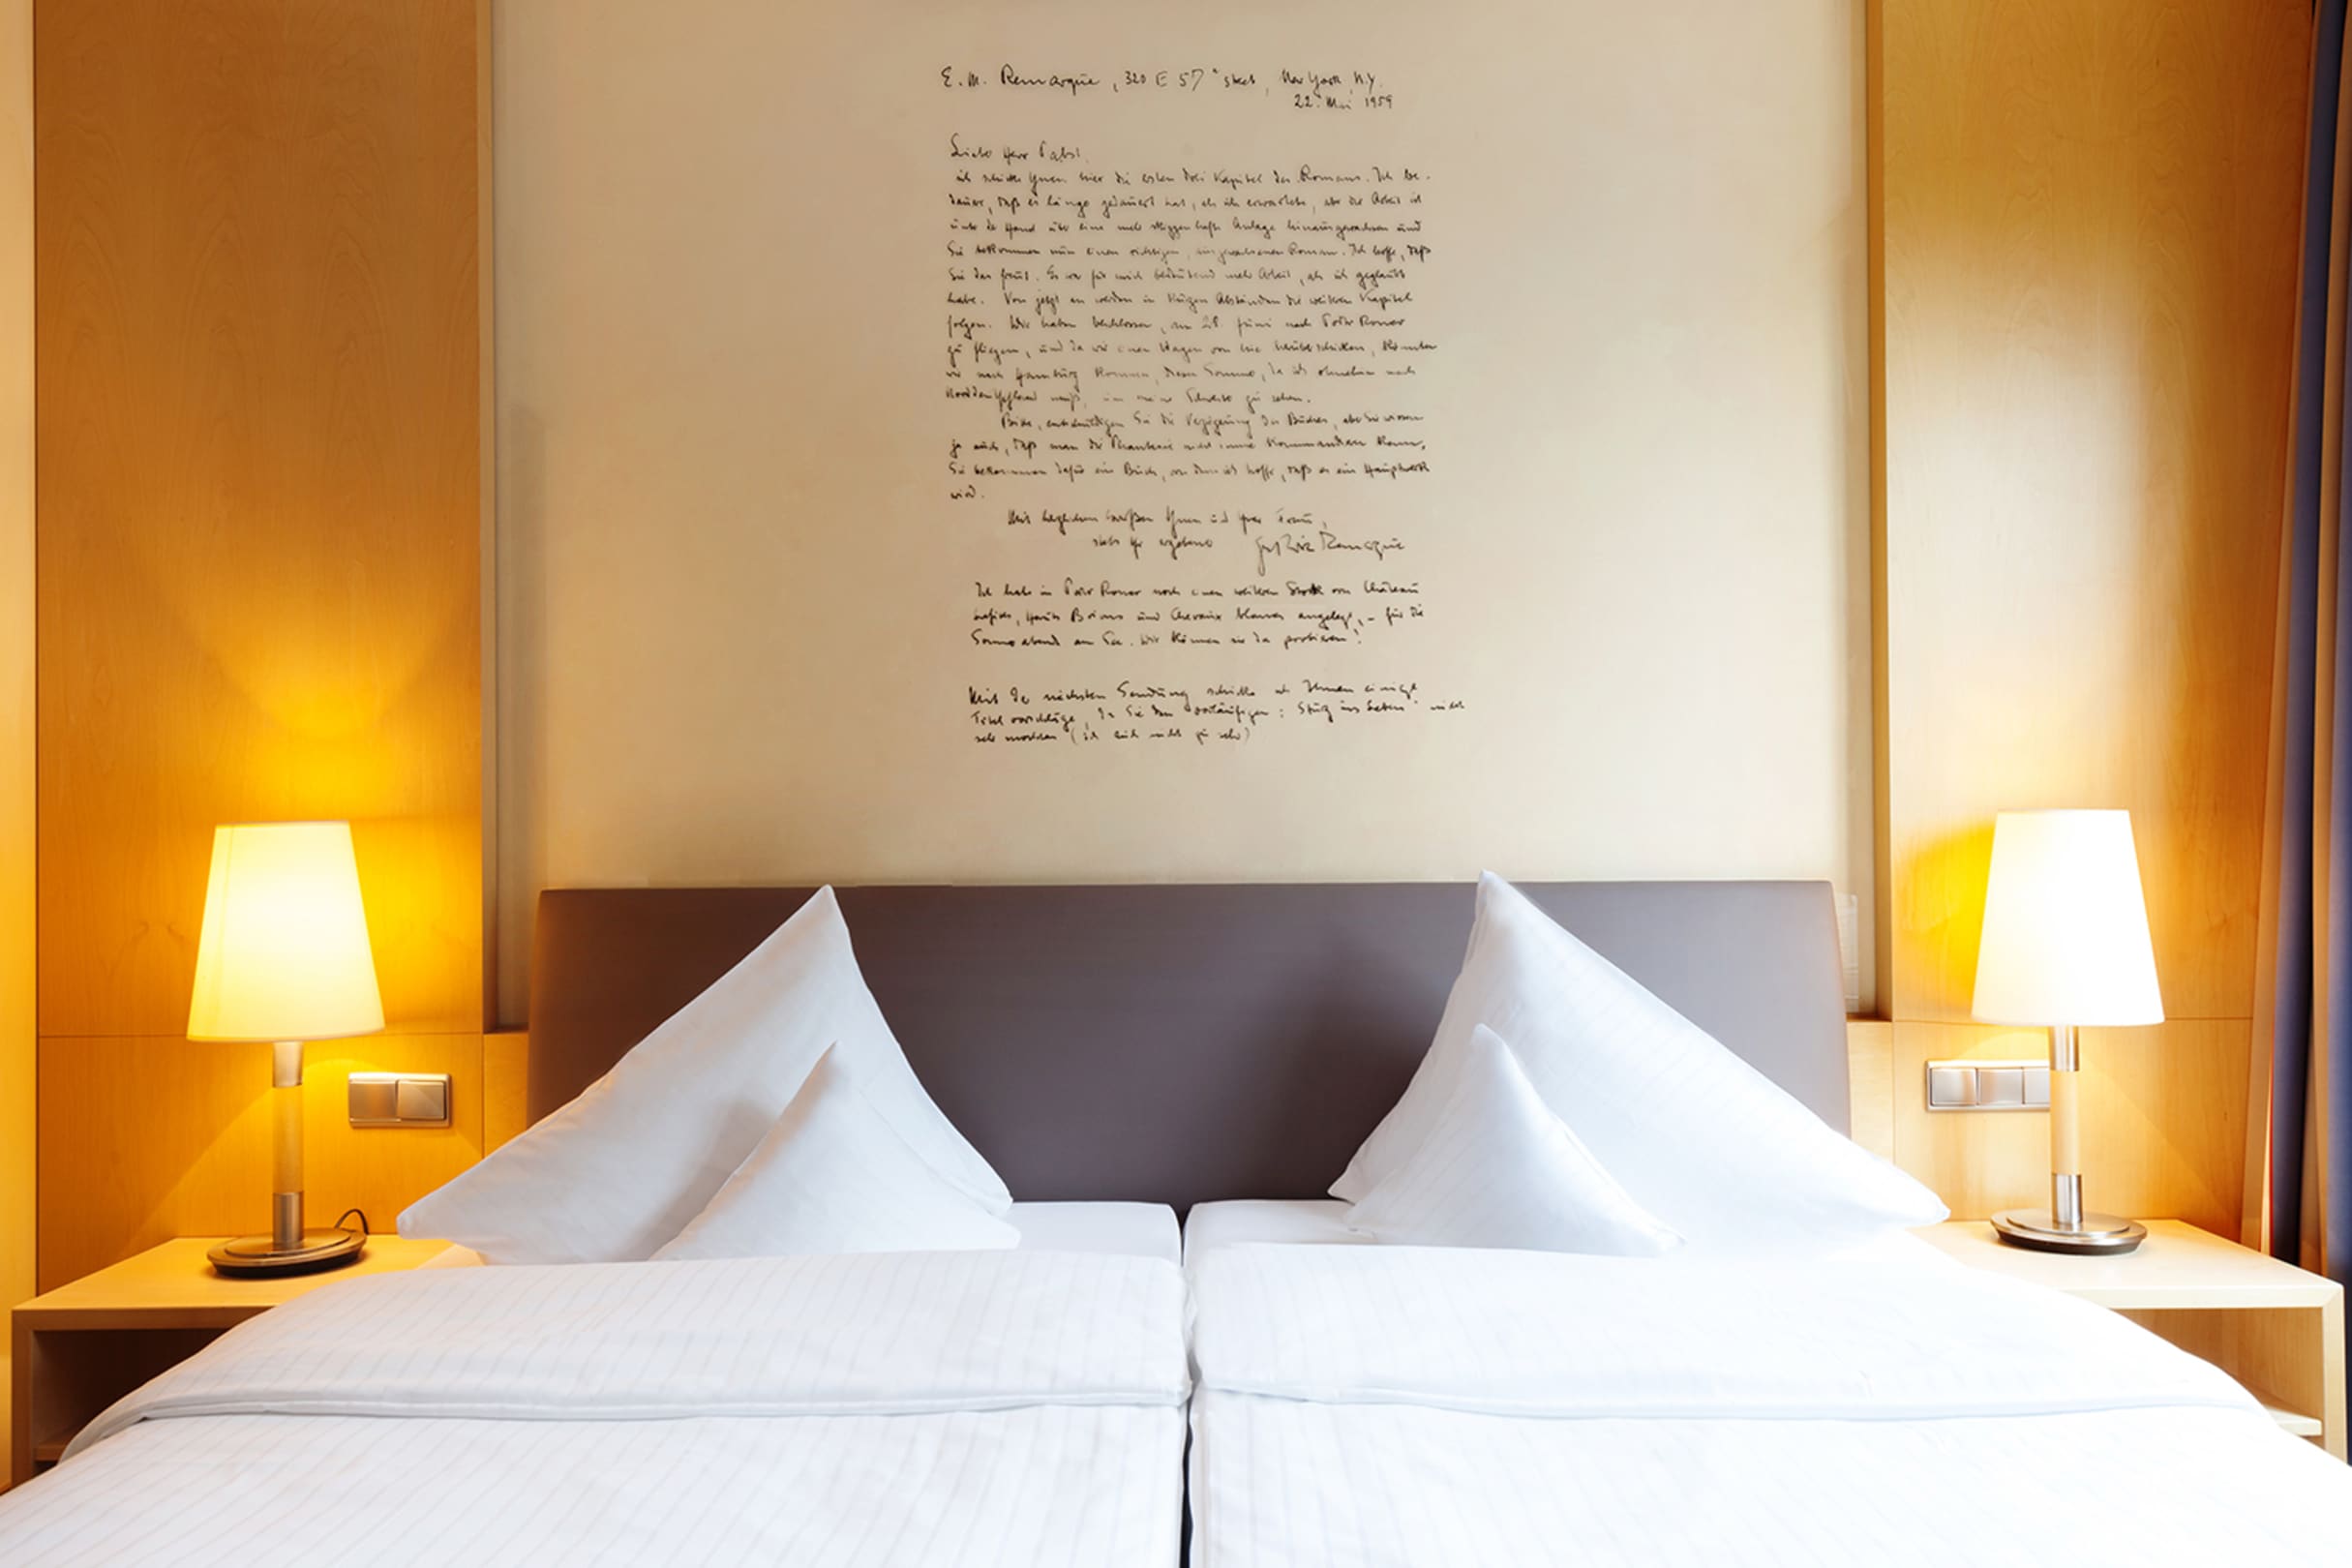 E. M. Remarque, 320 E 57th street, New York, N.Y.
22. Mai 1959
Lieber Herr Pabst,
ich schicke Ihnen hier die ersten drei Kapitel des Romans. Ich be-
daure, daß es länger gedauert hat, als ich erwartete, aber die Arbeit ist
unter der Hand über eine mehr skizzenhafte Anlage hinausgewachsen und
Sie bekommen nun einen richtigen, ausgewachsenen Roman. Ich hoffe, daß
Sie das freut. Es war für mich bedeutend mehr Arbeit, als ich geglaubt
habe. Von jetzt an werden in kurzen Abständen die weiteren Kapitel
folgen. Wir haben beschlossen, am 28. Juni nach Porto Ronco
zu fliegen, und da wir einen Wagen von hie herüberschicken, könnten
wir nach Hamburg kommen, diesen Sommer, da ich ohnehin nach
Norddeutschland muß, um meine Schwester zu sehen.
Bitte, entschuldigen Sie die Verzögerung des Buches, aber Sie wissen
ja auch, daß man die Phantasie nicht immer kommandieren kann,
Sie bekommen dafür ein Buch, von dem ich hoffe, daß es ein Hauptwerk
wird.
Mit herzlichen Grüßen Ihnen und Ihrer Frau,
stets Ihr ergebener Erich Maria Remarque
Ich habe in Porto Ronco noch einen weiteren Stock von Château
Lafites, Hauts Brions und Chevaux blancs angelegt, – für die
Sommerabende am See. Wir können sie da probieren!
Mit der nächsten Sendung schicke ich Ihnen einige
Titelvorschläge, da Sie den vorläufigen: Sturz ins Leben" nicht
sehr mochten (ich auch nicht zu sehr)